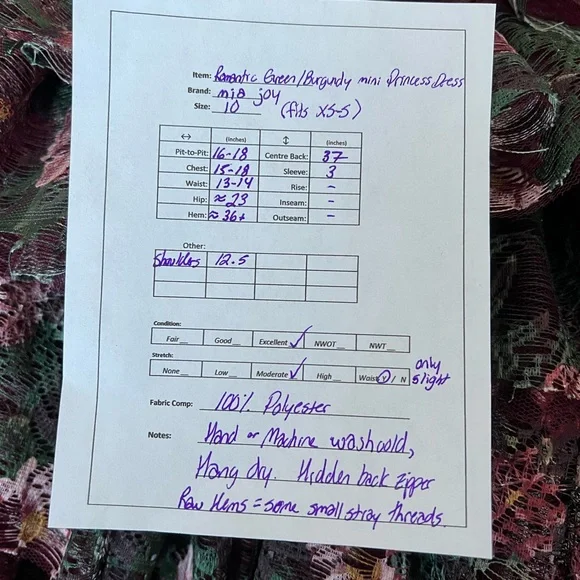 Item: Romantic Green/Burgundy mini Princess Dress
Brand: mia joy
Size: 10 (fits XS-S)
↔ (inches) ↕ (inches)
Pit-to-Pit: 16-18 Centre Back: 37
Chest: 15-18 Sleeve: 3
Waist: 13-14 Rise: -
Hip: ≈23 Inseam: -
Hem: ≈36+ Outseam: -
Other:
Shoulders 12.5
Condition:
Fair__ Good__ Excellent ✓ NWOT__ NWT__
Stretch:
None__ Low__ Moderate ✓ High__ Waist Y / N only slight
Fabric Comp: 100% Polyester
Notes: Hand or Machine wash cold,
Hang dry. Hidden back zipper
Raw Hems = some small stray threads